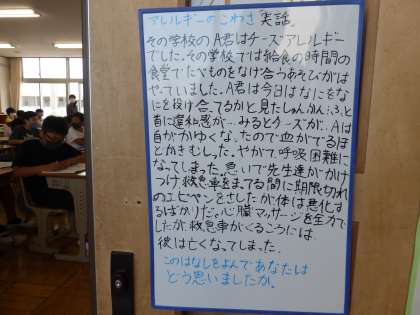 アレルギーのこわさ「実話」
その学校のA君はチーズアレルギー
でした。その学校では給食の時間の
食堂でたべものをなげ合うあそびがは
やっていました。A君は今日はなにをなに
を投げ合ってるかと見たしゅんかん、ふと
首に違和感が…みるとチーズが…Aは
首がかゆくなったので血がでるほ
どかきむしった。やがて、呼吸困難に
なってしまった。急いで先生達がかけ
つけ救急車をまってる間に期限切れ
のエピペンをさしたが体は悪化す
るばかりだ。心臓マッサージを全力で
したが救急車がくるころには
彼は亡くなってしまった。
このはなしをよんであなたは
どう思いましたか。